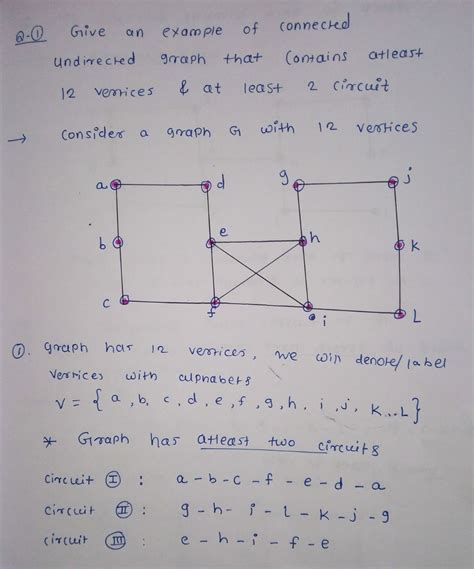 Q.① Give an example of connected
undirected graph that contains atleast
12 vertices & at least 2 circuit
→ Consider a graph G with 12 vertices
a d g j
b e h K
c f i L
①. Graph has 12 vertices, we will denote/label
vertices with alphabets
V = { a, b, c, d, e, f, g, h, i, j, K...L}
* Graph has atleast two circuits
Circuit Ⅰ : a - b - c - f - e - d - a
Circuit Ⅱ : g - h - i - l - k - j - g
Circuit Ⅲ : e - h - i - f - e